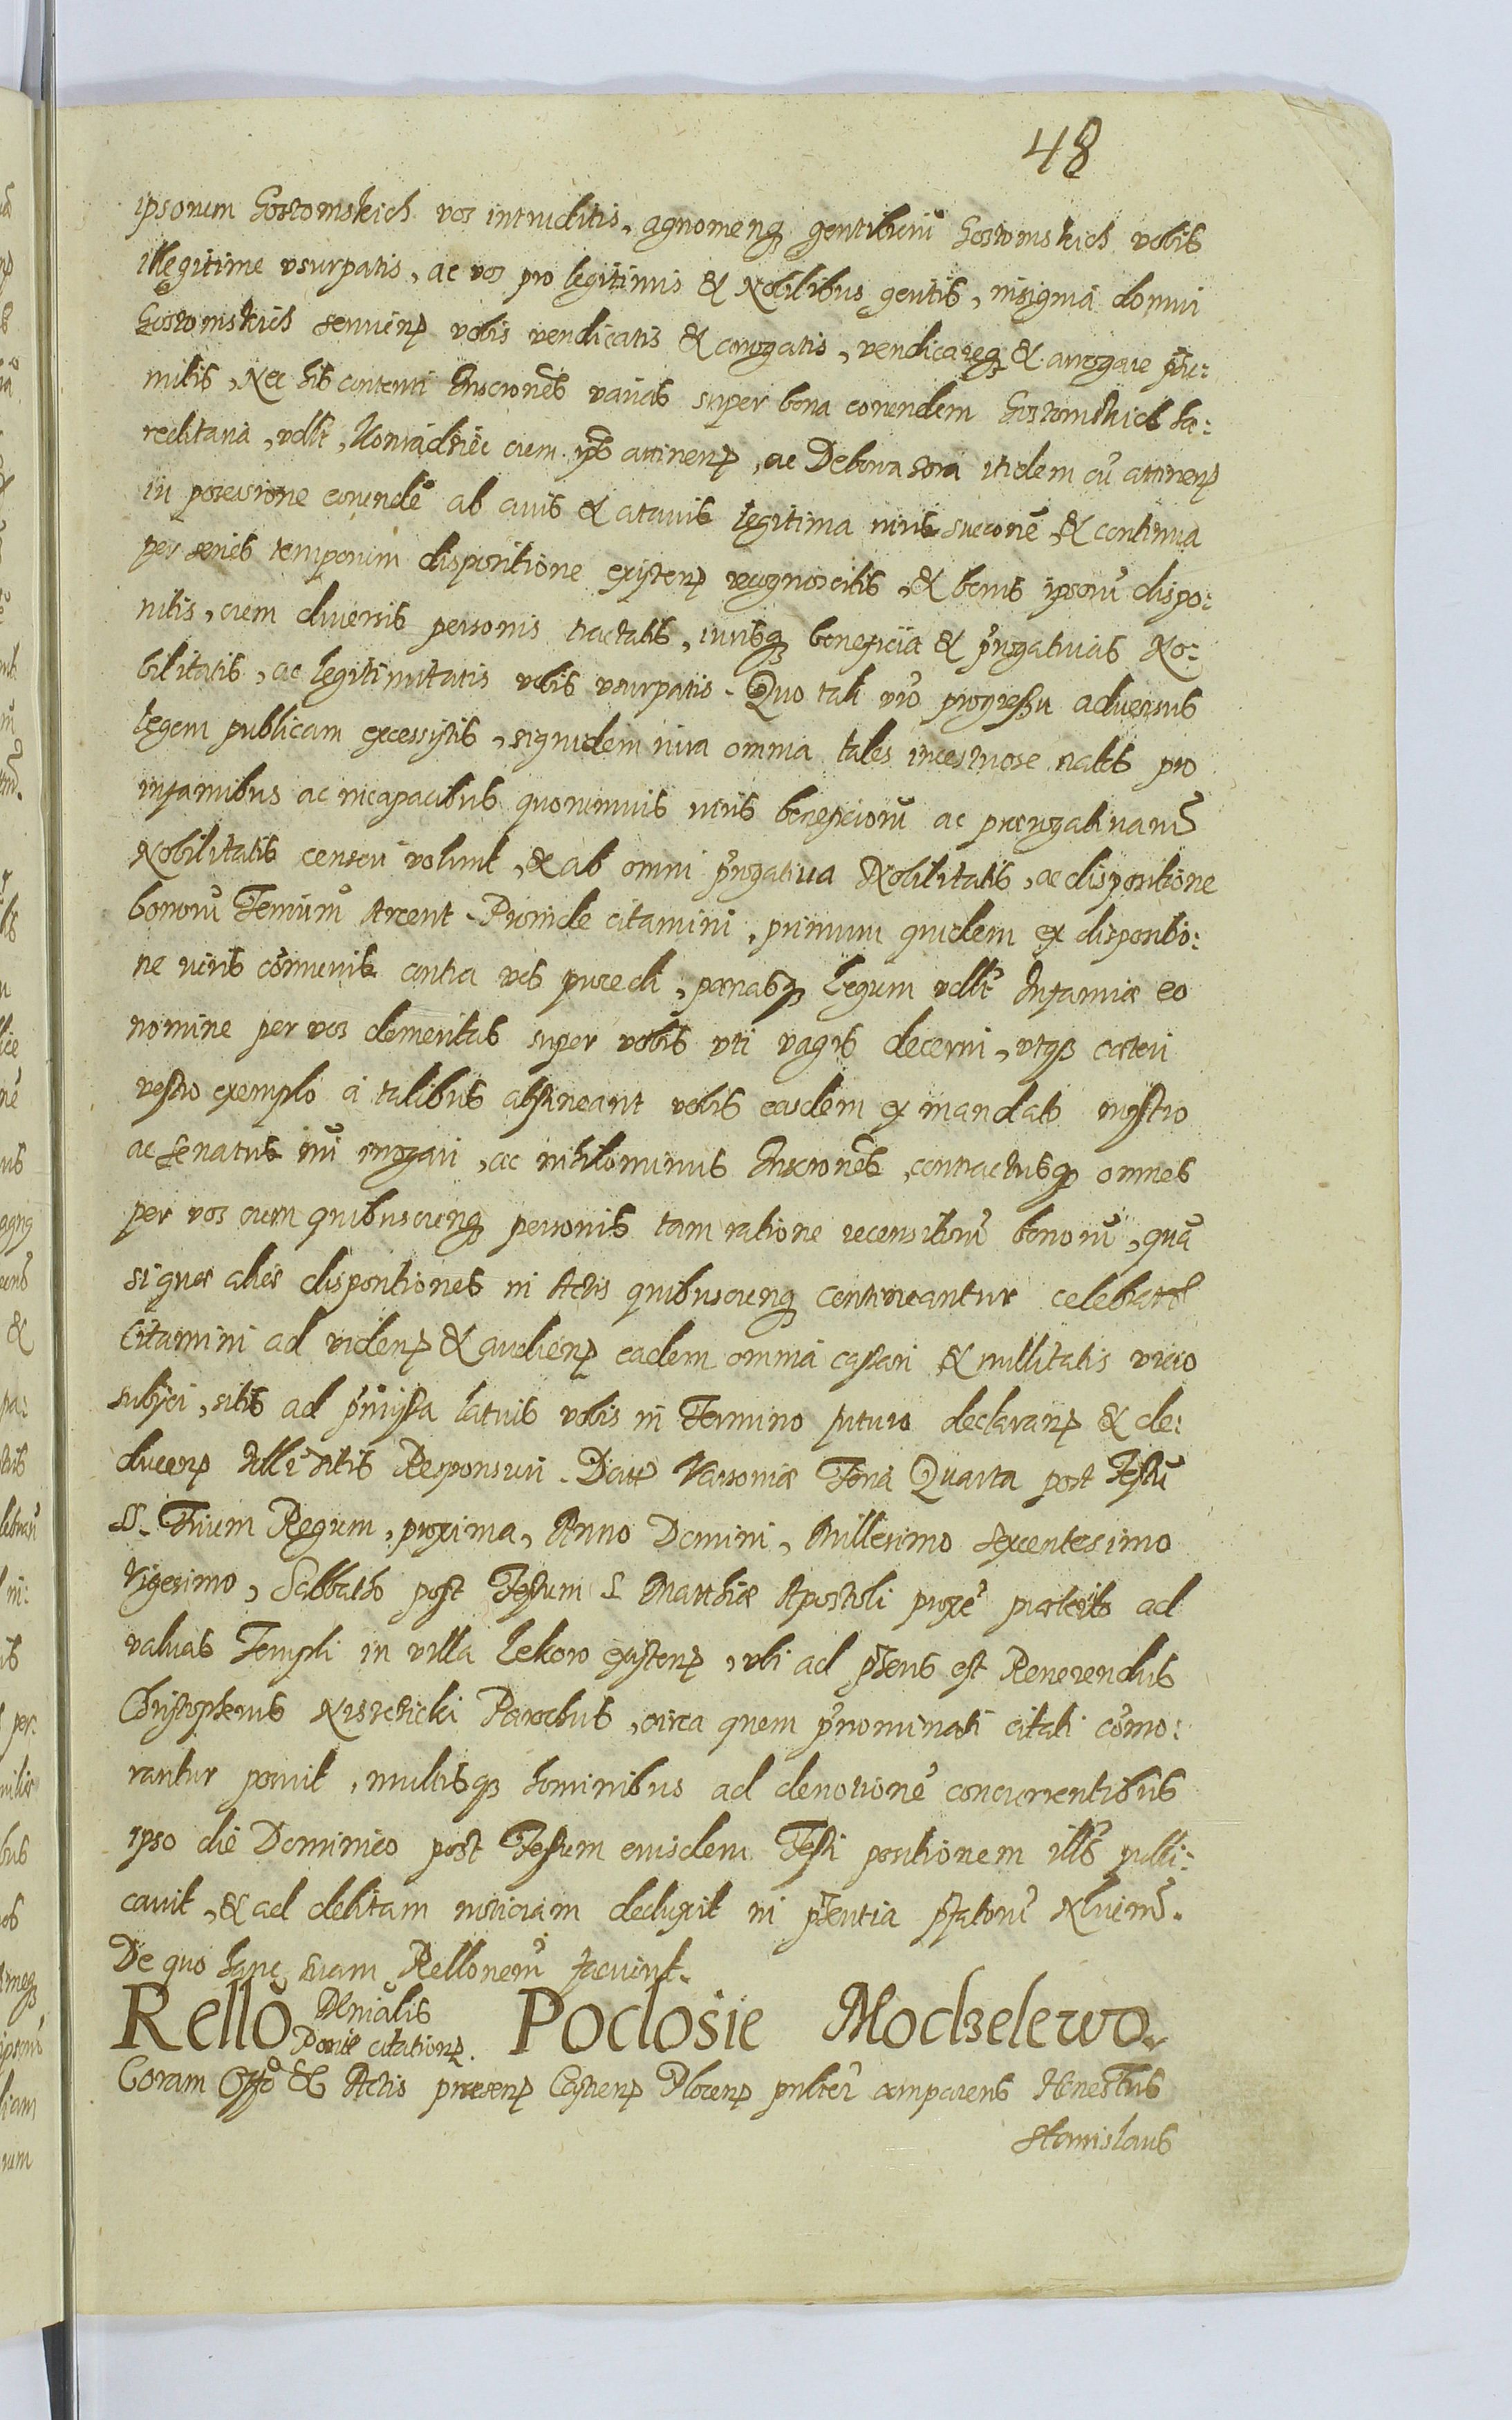 48
ipsorum Gostomskich vos intruditis, agnomenq gentilitiũ Gostomskich vobis
illegitime vsurpatis, ac vos pro legitimis & Nobilibus gentis, insignia domui
Gostomskich servien vobis vendicatis & arrogatis, vendicareq & arrogare
mitis, Nec his contenti Inscrones varias super bona eorundem Gostomskich hæ:
reditaria, vdlt, cum attinen, ac itidem cũ attinen
in possessione eorundẽ ab avis & atavis legitima iuris succonẽ & continua
per series temporum dispositione existen recognoscitis, & bonis ipsorũ dispo:
nitis, cum diversis personis tractatis, iurisq beneficia & prrogativas No:
bilitatis, ac legitimitatis vobis vsurpatis. Quo tali vro progressu adversus
legem publicam excessistis, siquidem iura omnia tales incestuose natos pro
infamibus ac incapacibus quorumvis iuris beneficiorũ ac prærogativarũ
Nobilitatis censeri volunt, & ab omni prrogativa Nobilitatis, ac dispositione
bonorũ Terrium Arcent. Proinde citamini, primum quidem ex dispositio:
ne iuris cõmunis contra vos procedi, pœnasq Legum vdlt Infamiæ eo
nomine per vos demeritas super vobis vti vagis decerni, vtq cæteri
vestro exemplo a talibus abstineant vobis easdem ex mandato nostro
ac Senatus irrogari, ac nihilominus Inscrones, contractusq omnes
per vos cum quibuscunq personis tam ratione recensitorũ bonorũ, quã
siquæ aliæ dispositiones in Actis quibuscunq contineantur celebratos
Citamini ad viden & audien eadem omnia cassari & nullitatis vicio
subijci, sitis ad prmissa latius vobis in Termino futuro declaran & de:
ducen Responsuri. Datt Varsoviæ Feria Quarta post Festũ
SS. Trium Regum, proxima, Anno Domini, Millesimo Sexcentesimo
Vigesimo, Sabbatho post Festum S Matthiæ Apostoli proxẽ præterito ad
valvas Templi in villa Lekowo existen, vbi ad prsens est Reverendus
Christophorus Parochus, circa quem prnominati citati cõmo:
rantur posuit, multisq hominibus ad devotionẽ concurrentibus
ipso die Dominico post Festum eiusdem Festi positionem illõ publi:
cavit, & ad debitam noticiam deduxit in prsentia prfatorũ Nbiumõ.
De quo hanc suam Rellonem fecerunt.
Rello Mnialis Ponis citationis. Podosie Modzelewo
Coram Offo & Actis præsen Castren Plocen prlter comparens Honestus
Stanislaus